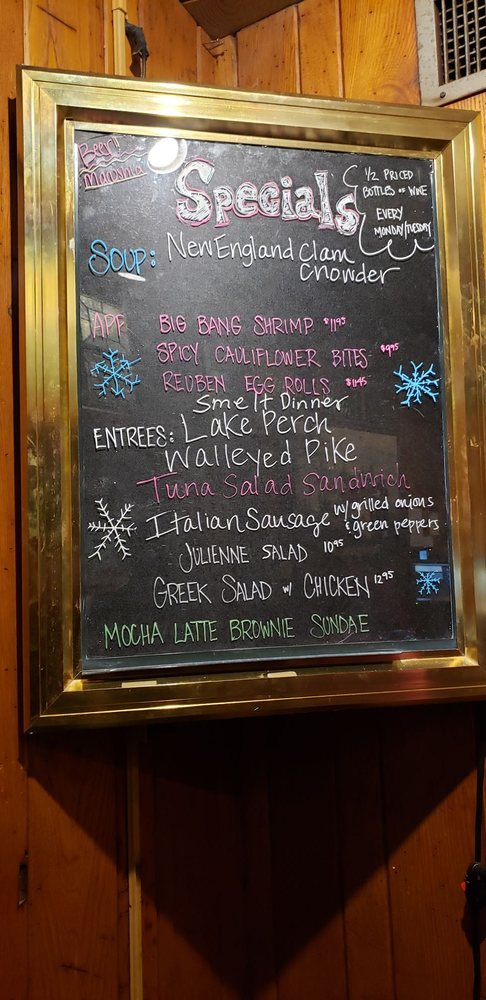 Beer!
Specials
1/2 PRICED
BOTTLES OF WINE
EVERY
MONDAY/TUESDAY
SOUP: New England Clam
Chowder
APP BIG BANG SHRIMP $11.95
SPICY CAULIFLOWER BITES $9.95
REUBEN EGG ROLLS $11.45
Smelt Dinner
ENTREES: Lake Perch
Walleyed Pike
Tuna Salad Sandwich
Italian Sausage w/grilled onions
& green peppers
JULIENNE SALAD 10.95
GREEK SALAD w/ CHICKEN 12.95
MOCHA LATTE BROWNIE SUNDAE